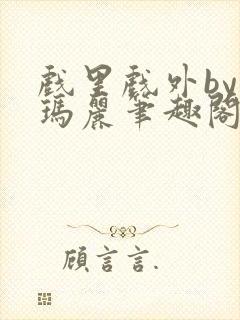 戲里戲外by
瑪麗筆趣閣
顧言言.